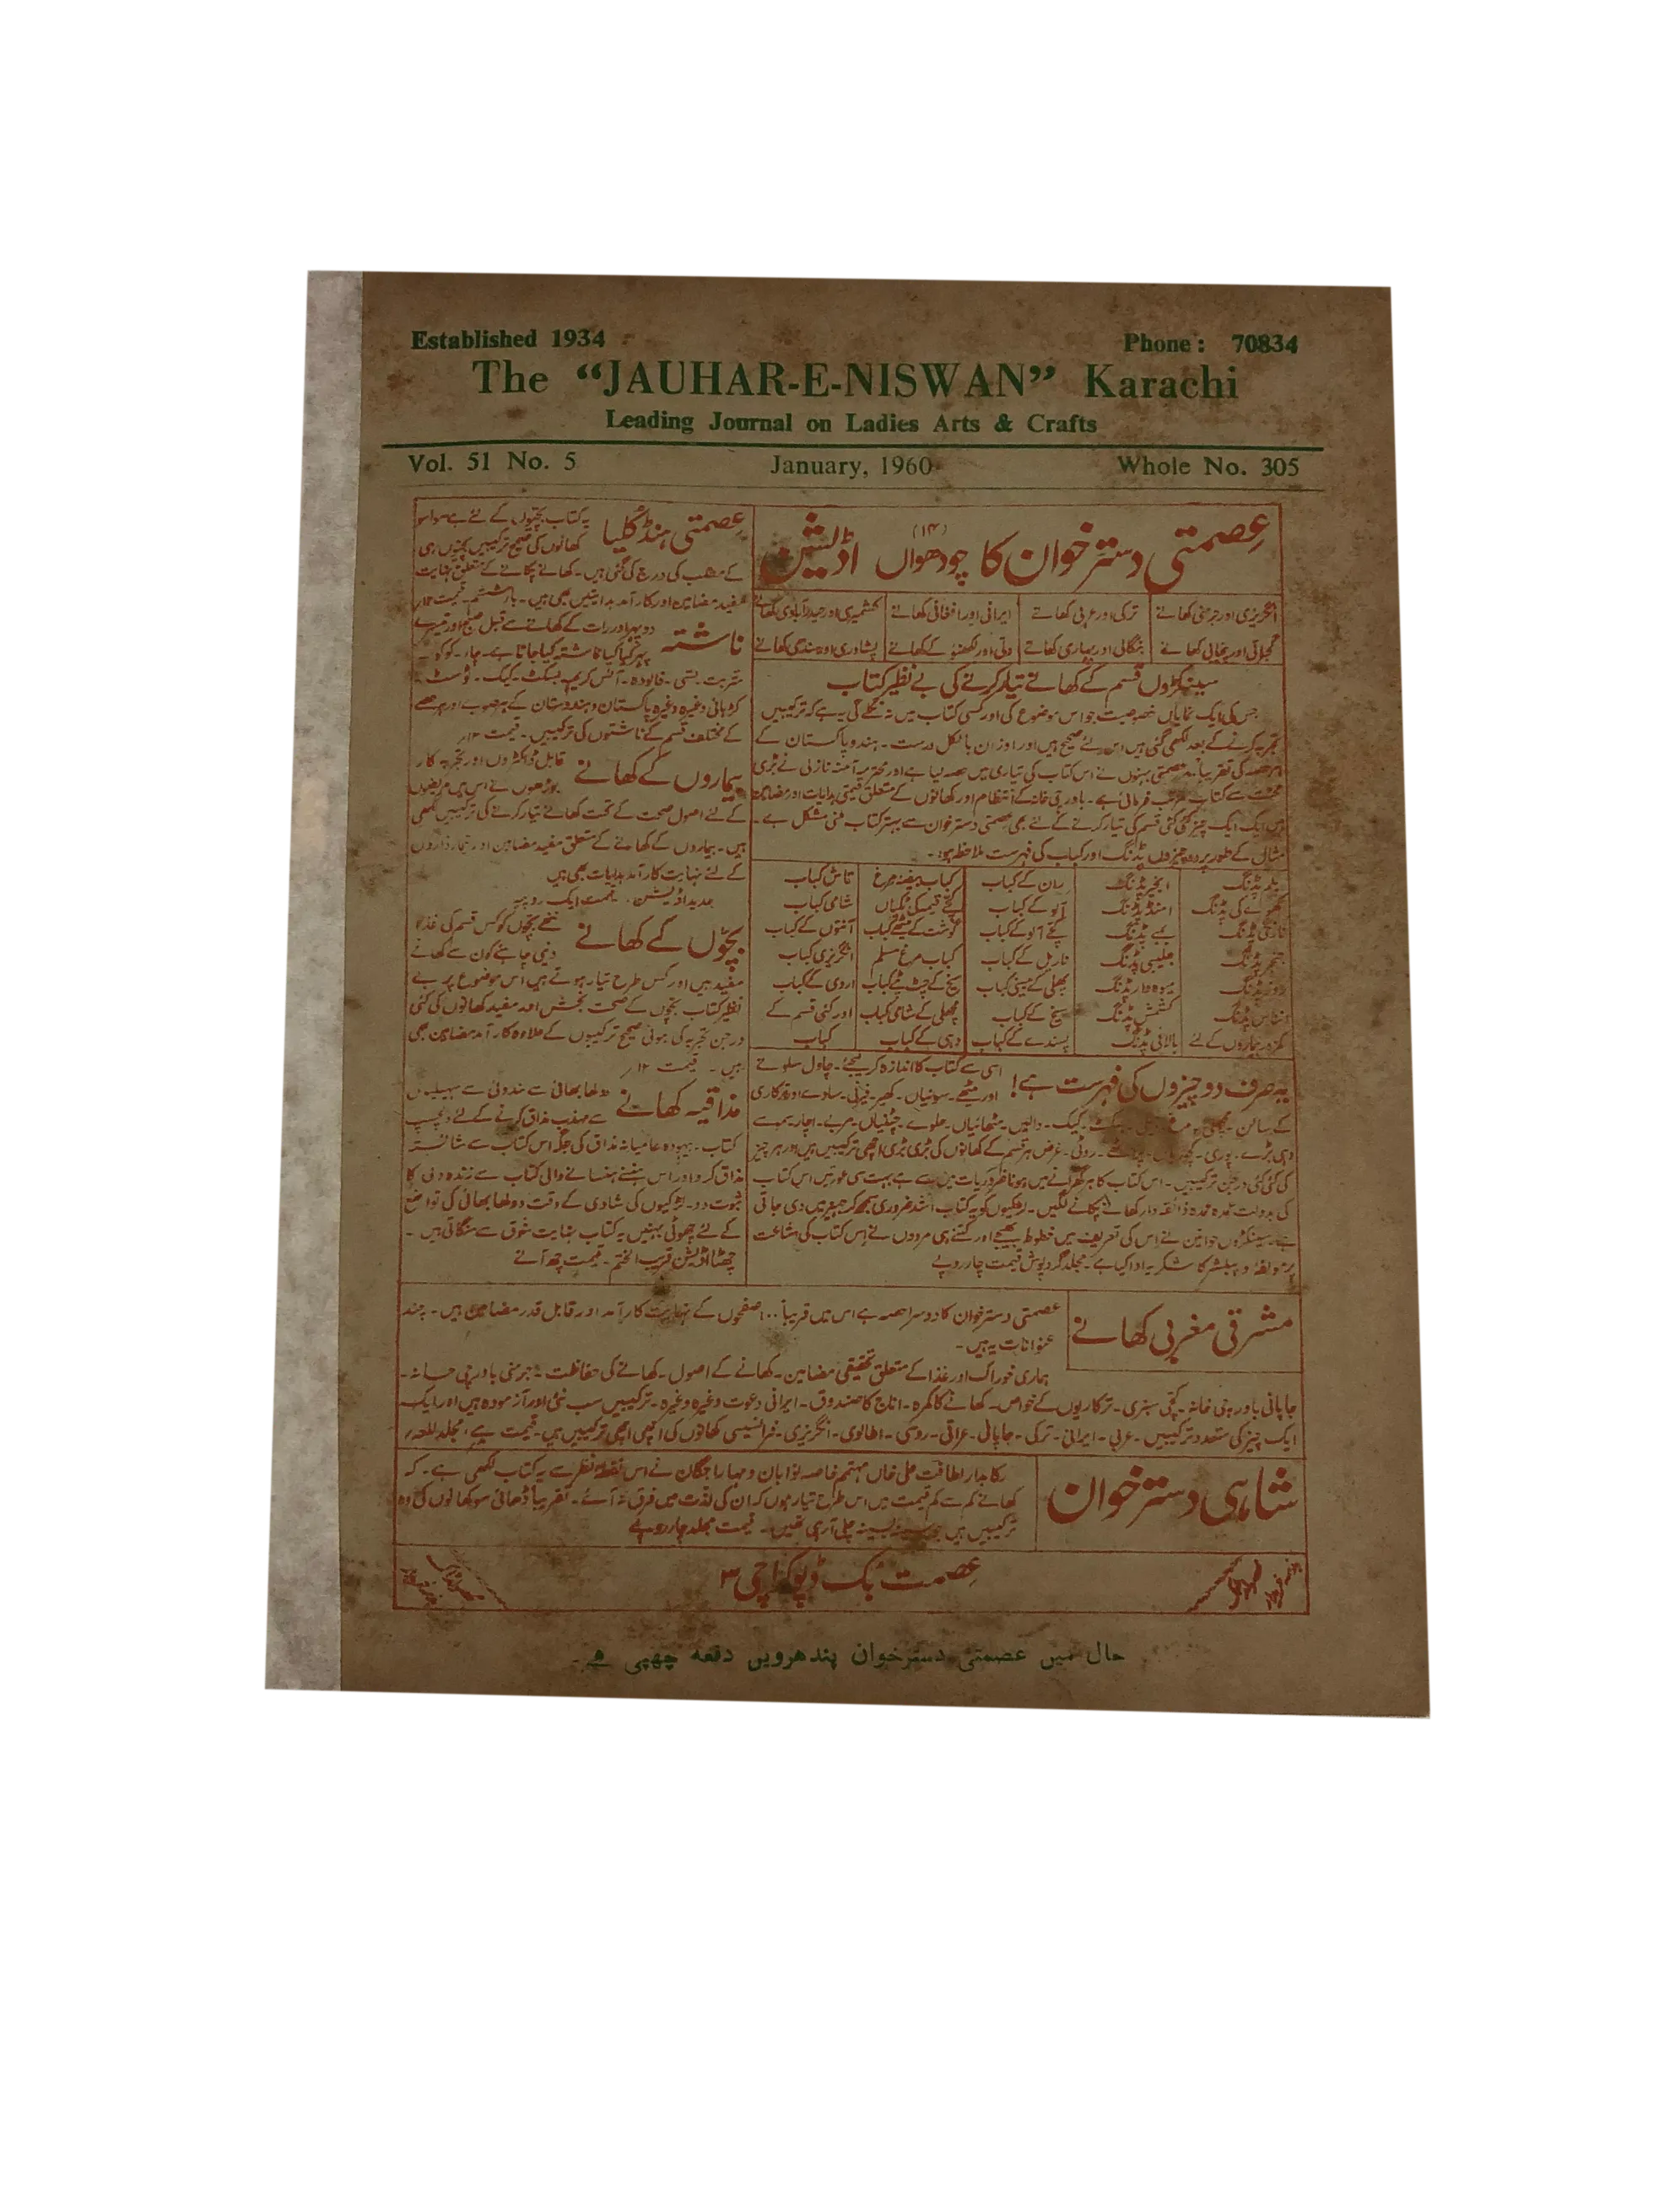 Established 1934
Phone: 70834
The “JAUHAR-E-NISWAN” Karachi
Leading Journal on Ladies Arts & Crafts
Vol. 51 No. 5
January, 1960
Whole No. 305
عصمتی دسترخوان کا چودھواں (۱۴) اڈیشن
انگریزی اور جرمنی کھانے
ترکی اور عربی کھانے
ایرانی اور افغانی کھانے
کشمیری اور حیدرآبادی کھانے
گجراتی اور نیپالی کھانے
بنگالی اور بہاری کھانے
دلی اور لکھنؤ کے کھانے
پشاوری اور سندھی کھانے
سینکڑوں قسم کے کھانے تیار کرنے کی بے نظیر کتاب
جس کی ایک نمایاں خصوصیت جو اس موضوع کی اور کسی کتاب میں نہ نکلے گی یہ ہے کہ ترکیبیں
تجربہ کرنے کے بعد لکھی گئی ہیں اس لئے صحیح ہیں اور اوزان بالکل درست۔ ہندوپاکستان کے
ہر حصہ کی تقریباً عصمتی بہنوں نے اس کتاب کی تیاری میں حصہ لیا ہے اور محترمہ آمنہ نازلی نے بڑی
محنت سے کتاب مرتب فرمائی ہے۔ باورچی خانہ کے انتظام اور کھانوں کے متعلق قیمتی ہدایات اور مضامین
ہیں ایک ایک چیز کئی کئی قسم کی تیار کرنے کے لئے بھی عصمتی دسترخوان سے بہتر کتاب ملنی مشکل ہے۔
مثال کے طور پر دو چیزوں پڈنگ اور کباب کی فہرست ملاحظہ ہو:۔
بریڈ پڈنگ
انجیر پڈنگ
ران کے کباب
کباب بیضہ مرغ
تاش کباب
کھوے کی پڈنگ
امنڈ پڈنگ
آلو کے کباب
کچے قیمہ کی ٹکیاں
شامی کباب
نارنجی پڈنگ
کچے آلو کے کباب
گوشت کے میٹھے کباب
آنتوں کے کباب
جنجر پڈنگ
جلیبی پڈنگ
ناریل کے کباب
کباب مرغ مسلم
انگریزی کباب
روز پڈنگ
میوہ دار پڈنگ
مچھلی کے سیخی کباب
سیخ کے چٹ پٹے کباب
اروی کے کباب
انناس پڈنگ
کشمش پڈنگ
سیخ کے کباب
مچھلی کے شامی کباب
اور کئی قسم کے
کمزور بیماروں کے لئے
بالائی پڈنگ
پسندے کے کباب
دہی کے کباب
کباب
یہ صرف دو چیزوں کی فہرست ہے!
اسی سے کتاب کا اندازہ کر لیجئے۔ چاول سلونے
اور میٹھے۔ سویاں۔ کھیر۔ فیرنی۔ سادے اور ترکاری
کے سالن۔ کیک۔ دالیں۔ مٹھائیاں۔ حلوے۔ چٹنیاں۔ مربے۔ اچار
دہی بڑے۔ پوری۔ روٹی۔ غرض ہر قسم کے کھانوں کی بڑی بڑی اچھی ترکیبیں ہیں اور ہر چیز
کی کئی کئی درجن ترکیبیں۔ اس کتاب کا ہر گھرانے میں ہونا ضروریات میں سے ہے بہت سی عورتیں اس کتاب
کی بدولت عمدہ عمدہ ذائقہ دار کھانے پکانے لگیں۔ لڑکیوں کو یہ کتاب اشد ضروری سمجھ کر جہیز میں دی جاتی
ہے۔ سینکڑوں خواتین نے اس کی تعریف میں خطوط بھیجے اور کتنے ہی مردوں نے اس کتاب کی اشاعت
پر مولفہ و پبلشر کا شکریہ ادا کیا ہے۔ مجلد گرد پوش قیمت چار روپے
عصمتی ہنڈکلیا
یہ کتاب بچیوں کے لئے ہے
کھانوں کی صحیح ترکیبیں بچیوں ہی
کے مطلب کی درج کی گئی ہیں۔ کھانے پکانے کے متعلق نہایت
مفید مضامین اور کارآمد ہدایتیں بھی ہیں۔ بار ہشتم۔ قیمت ۱۲؍
ناشتہ
دوپہر اور رات کے کھانے سے قبل صبح اور تیسرے
پہر کیا کیا ناشتہ کیا جاتا ہے۔ چاء۔ کوکو۔
شربت۔ لسی۔ فالودہ۔ آئس کریم۔ بسکٹ۔ کیک۔ ٹوسٹ۔
وغیرہ وغیرہ پاکستان و ہندوستان کے ہر صوبے اور ہر حصے
کے مختلف قسم کے ناشتوں کی ترکیبیں۔ قیمت ۱۲؍
بیماروں کے کھانے
قابل ڈاکٹروں اور تجربہ کار
بوڑھوں نے اس میں مریضوں
کے لئے اصول صحت کے تحت کھانے تیار کرنے کی ترکیبیں لکھی
ہیں۔ بیماروں کے کھانے کے متعلق مفید مضامین اور تیمارداروں
کے لئے نہایت کارآمد ہدایات بھی ہیں
جدید اڈیشن۔ قیمت ایک روپیہ
بچوں کے کھانے
ننھے بچوں کو کس قسم کی غذا
دینی چاہئے کون سے کھانے
مفید ہیں اور کس طرح تیار ہوتے ہیں اس موضوع پر بے
نظیر کتاب بچوں کے صحت بخش اور مفید کھانوں کی کئی
درجن تجربہ کی ہوئی صحیح ترکیبوں کے علاوہ کارآمد مضامین بھی
ہیں۔ قیمت ۱۲؍
مذاقیہ کھانے
دولھا بھائی سے نندوئی سے سہیلیوں
سے مہذب مذاق کرنے کے لئے دلچسپ
کتاب۔ بیہودہ عامیانہ مذاق کی جگہ اس کتاب سے شائستہ
مذاق کرو اور اس ہنسنے ہنسانے والی کتاب سے زندہ دلی کا
ثبوت دو۔ لڑکیوں کی شادی کے وقت دولھا بھائی کی تواضع
کے لئے چھوٹی بہنیں یہ کتاب نہایت شوق سے منگاتی ہیں۔
چھٹا اڈیشن قریب الختم۔ قیمت چھ آنے
مشرقی مغربی کھانے
عصمتی دسترخوان کا دوسرا حصہ ہے اس میں قریباً ۱۰۰ صفحوں کے نہایت کارآمد اور قابل قدر مضامین ہیں۔ چند
عنوانات یہ ہیں۔
ہماری خوراک اور غذا کے متعلق تحقیقی مضامین۔ کھانے کے اصول۔ کھانے کی حفاظت۔ جرمنی باورچی خانہ۔
جاپانی باورچی خانہ۔ کچی سبزی۔ ترکاریوں کے خواص۔ کھانے کا کمرہ۔ اناج کا صندوق۔ ایرانی دعوت وغیرہ وغیرہ۔ ترکیبیں سب نئی اور آزمودہ ہیں اور ایک
ایک چیز کی متعدد ترکیبیں۔ عربی۔ ایرانی۔ ترکی۔ جاپانی۔ عراقی۔ روسی۔ اطالوی۔ انگریزی۔ فرانسیسی کھانوں کی اچھی اچھی ترکیبیں ہیں۔ قیمت
شاہی دسترخوان
رکابدار لطافت علی خاں مہتمم خاصہ نوابان و مہاراجگان نے اس نقطہ نظر سے یہ کتاب لکھی ہے۔ کہ
کھانے کم سے کم قیمت میں اس طرح تیار ہوں کہ ان کی لذت میں فرق نہ آئے۔ تقریباً ڈھائی سو کھانوں کی وہ
ترکیبیں ہیں جو سینہ بسینہ چلی آرہی تھیں۔ قیمت مجلد چار روپے
عصمت بک ڈپو کراچی ۳
حال میں عصمتی دسترخوان پندھرویں دفعہ چھپی ہے۔